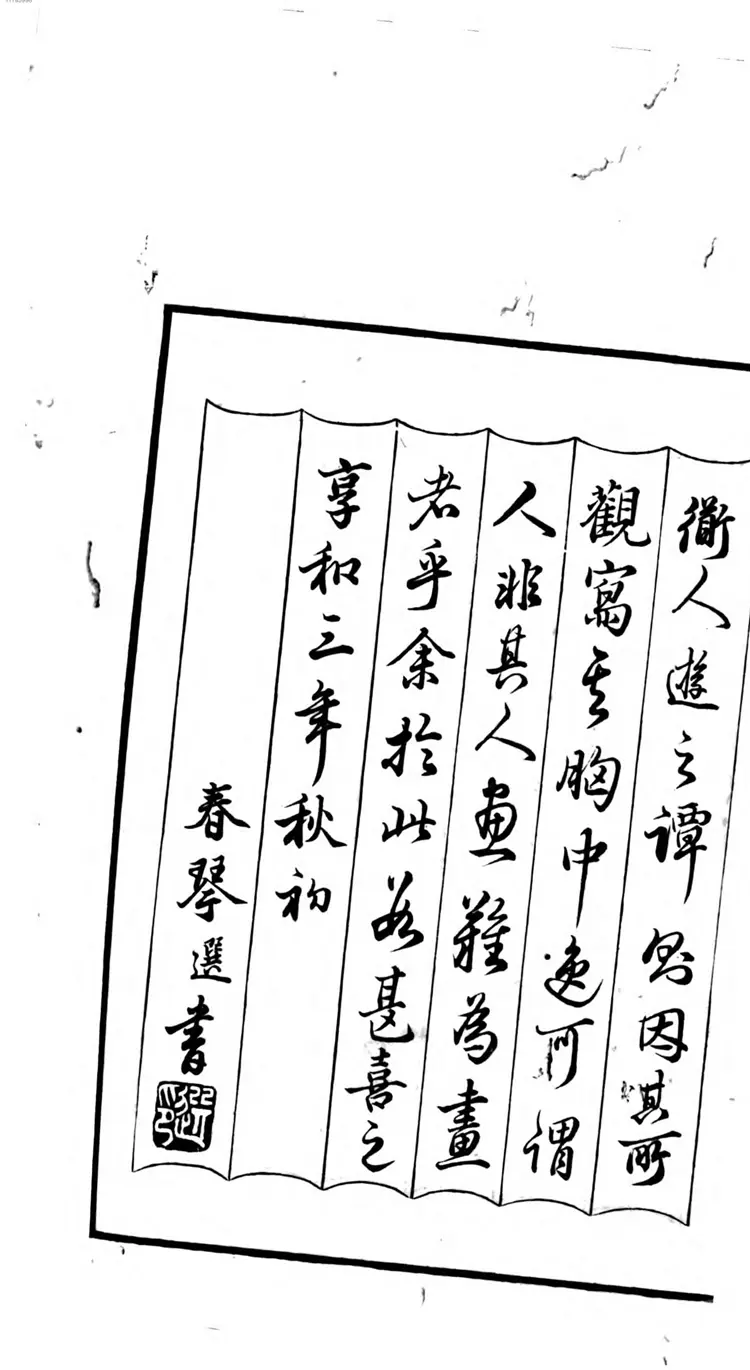 衙人遊之譚則因其所
觀寫其胸中逸可謂
人非其人画難為畫
者乎余於此甚喜之
享和三年秋初
春琴選書